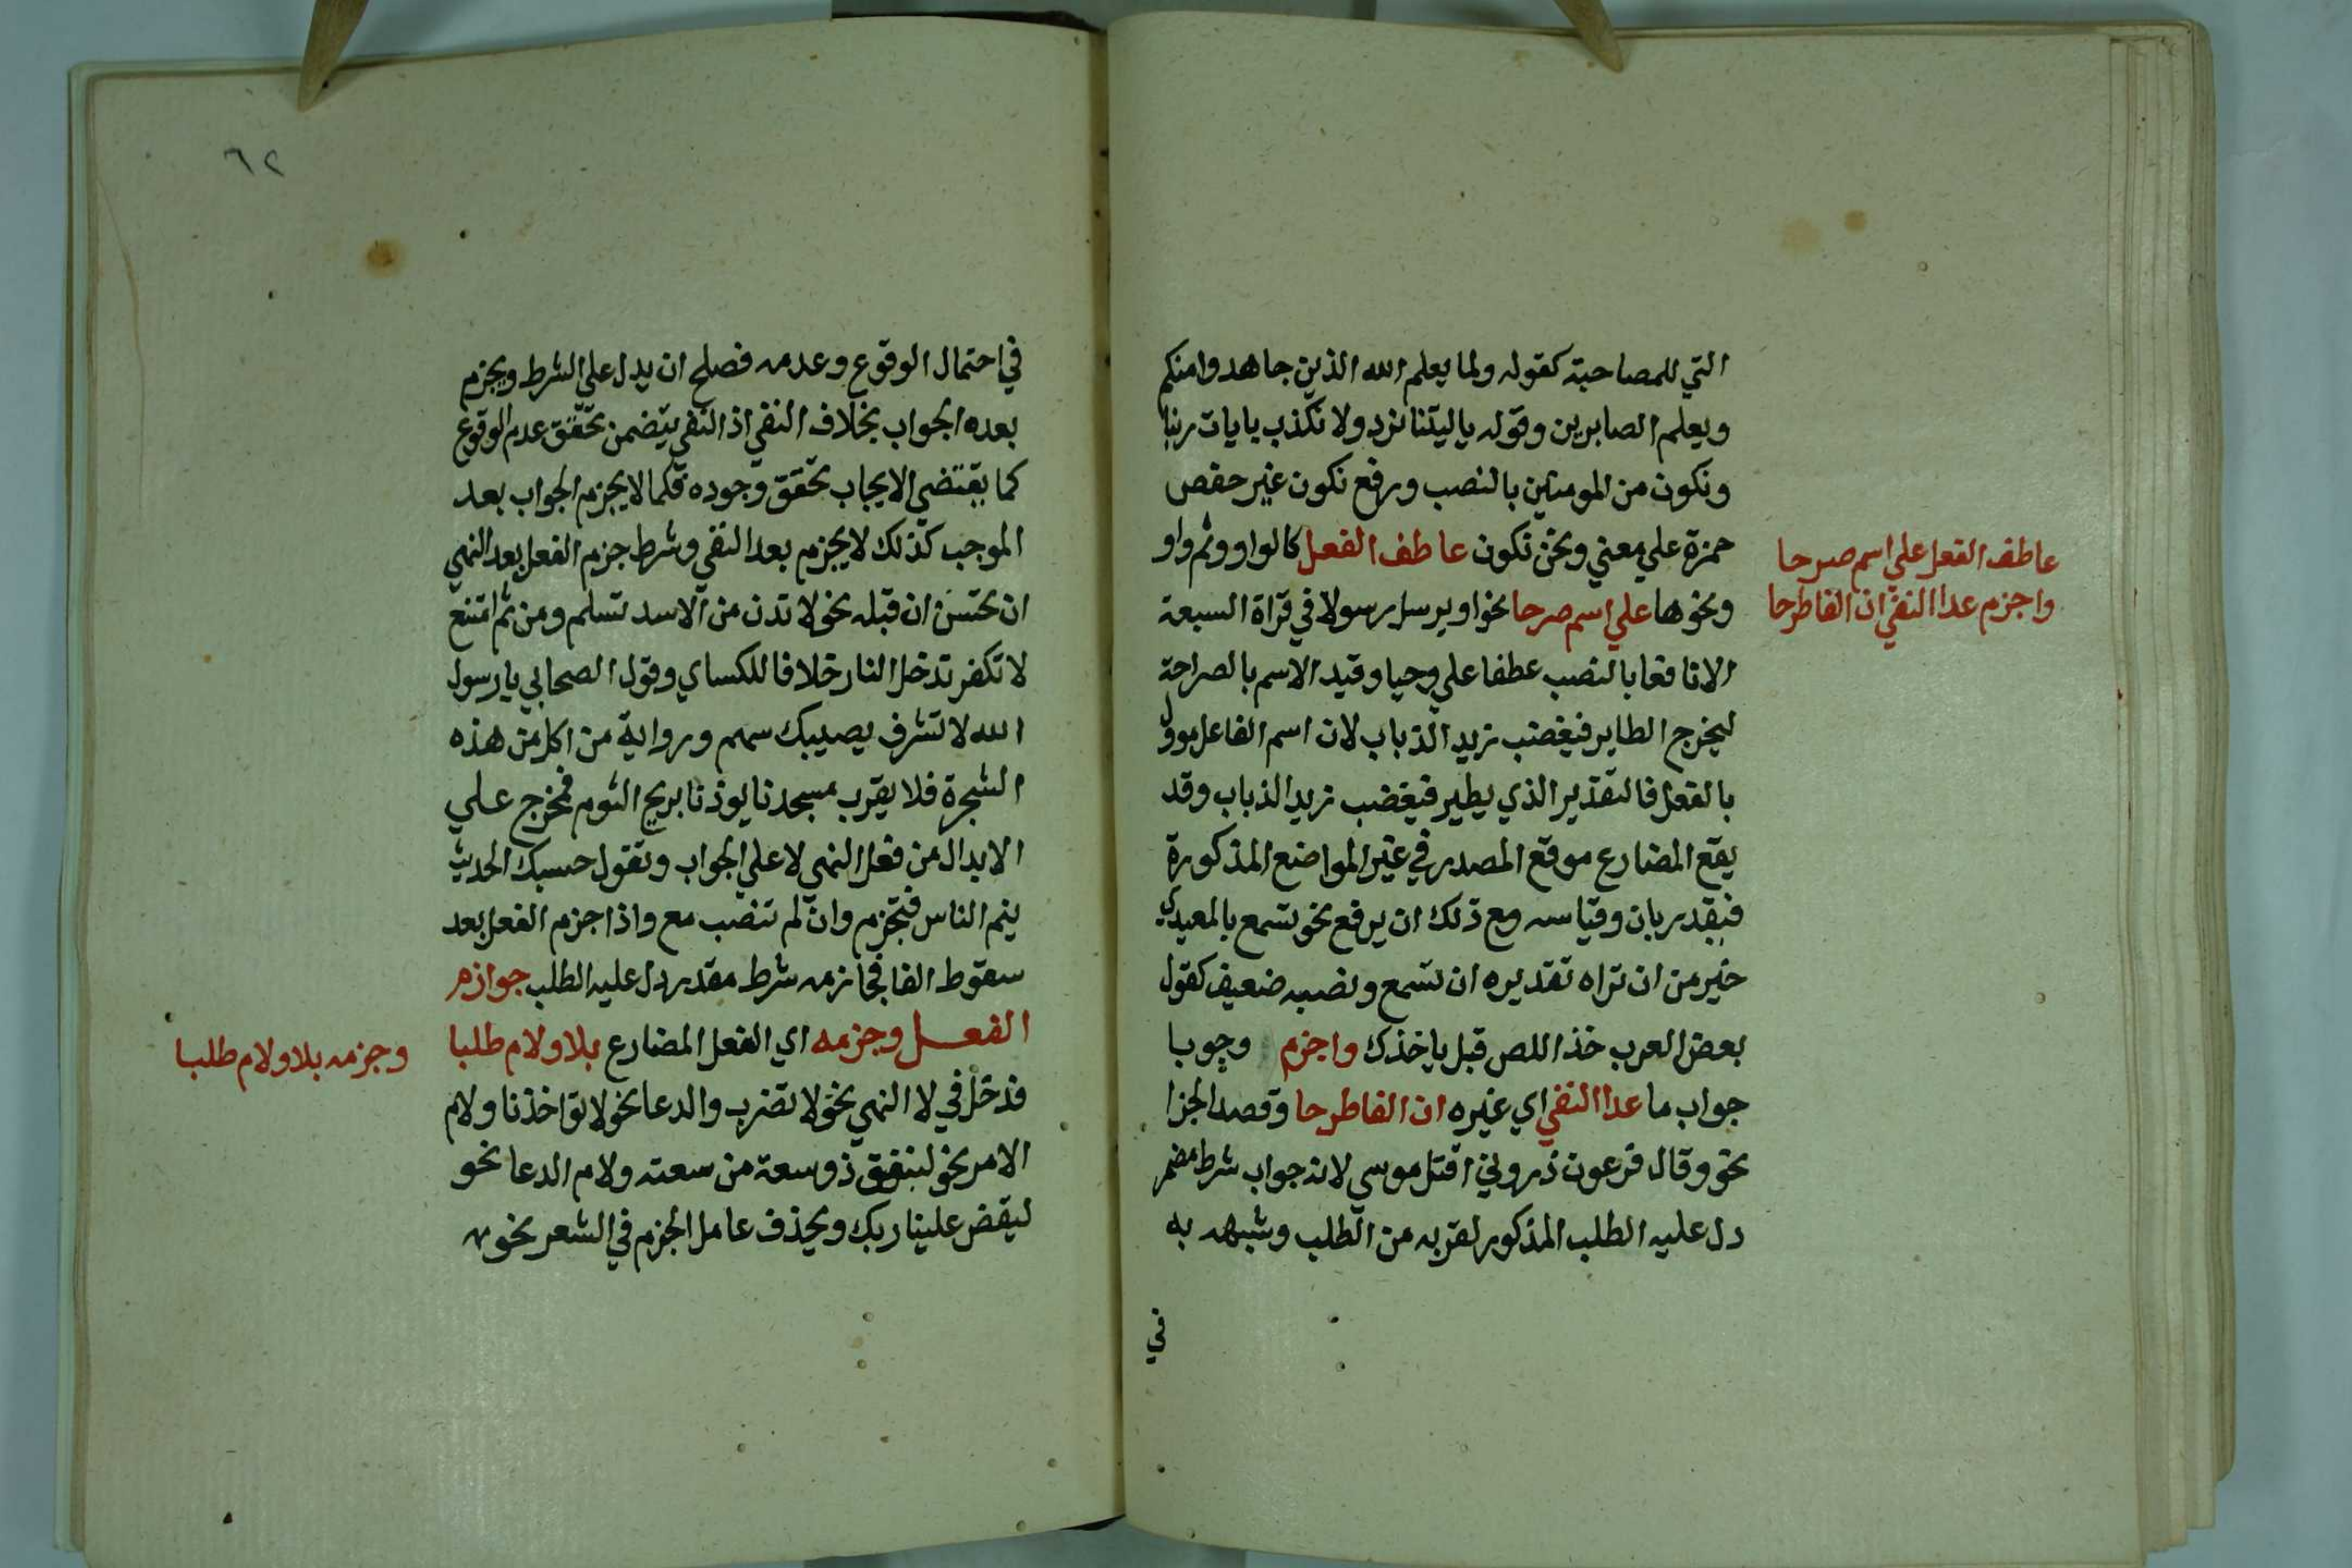 التي للمصاحبة كقوله ولما يعلم الله الذين جاهدوا منكم
ويعلم الصابرين وقوله ياليتنا نرد ولا نكذب بايات ربنا
ونكون من المومنين بالنصب ورفع نكون غير حفص
حمزة علي معني ونحن نكون عاطف الفعل كالواو وثم واو
ونحوها علي اسم صرحا نحو او يرسل رسولا في قراة السبعة
الا نافعا بالنصب عطفا علي وحيا وقيد الاسم بالصراحة
ليخرج الطاير فيغضب زيد الذباب لان اسم الفاعل موول
بالفعل فالتقدير الذي يطير فيغضب زيد الذباب وقد
يقع المضارع موقع المصدر في غير المواضع المذكورة
فيقدر بان وقياسه مع ذلك ان يرفع نحو تسمع بالمعيدي
خير من ان تراه تقديره ان تسمع ونصبه ضعيف كقول
بعض العرب خذ اللص قبل ياخذك واجزم وجوبا
جواب ما عدا النفي اي غيره ان الفا طرحا وقصد الجزا
نحو وقال فرعون ذروني اقتل موسي لانه جواب شرط مضمر
دل عليه الطلب المذكور لقربه من الطلب وشبهه به
في
عاطف الفعل علي اسم صرحا
واجزم عدا النفي ان الفا طرحا
٦٢
في احتمال الوقوع وعدمه فصلح ان يدل علي الشرط ويجزم
بعده الجواب بخلاف النفي اذ النفي يتضمن تحقق عدم الوقوع
كما يقتضي الايجاب تحقق وجوده فكما لا يجزم الجواب بعد
الموجب كذلك لا يجزم بعد النفي وشرط جزم الفعل بعد النهي
ان تحسن ان قبله نحو لا تدن من الاسد تسلم ومن ثم امتنع
لا تكفر تدخل النار خلافا للكساي وقول الصحابي يا رسول
الله لا تشرف يصيبك سهم ورواية من اكل من هذه
الشجرة فلا يقرب مسجدنا يوذنا بريح الثوم فمخرج علي
الابدال من فعل النهي لا علي الجواب وتقول حسبك الحديث
ينم الناس فتجزم وان لم تنصب مع واذا جزم الفعل بعد
سقوط الفا فجازمه شرط مقدر دل عليه الطلب جوازم
الفعل وجزمه اي الفعل المضارع بلا ولام طلبا
فدخل في لا النهي نحو لا تضرب والدعا نحو لا تؤاخذنا ولام
الامر نحو لينفق ذو سعة من سعته ولام الدعا نحو
ليقض علينا ربك ويحذف عامل الجزم في الشعر نحو
وجزمه بلا ولام طلبا